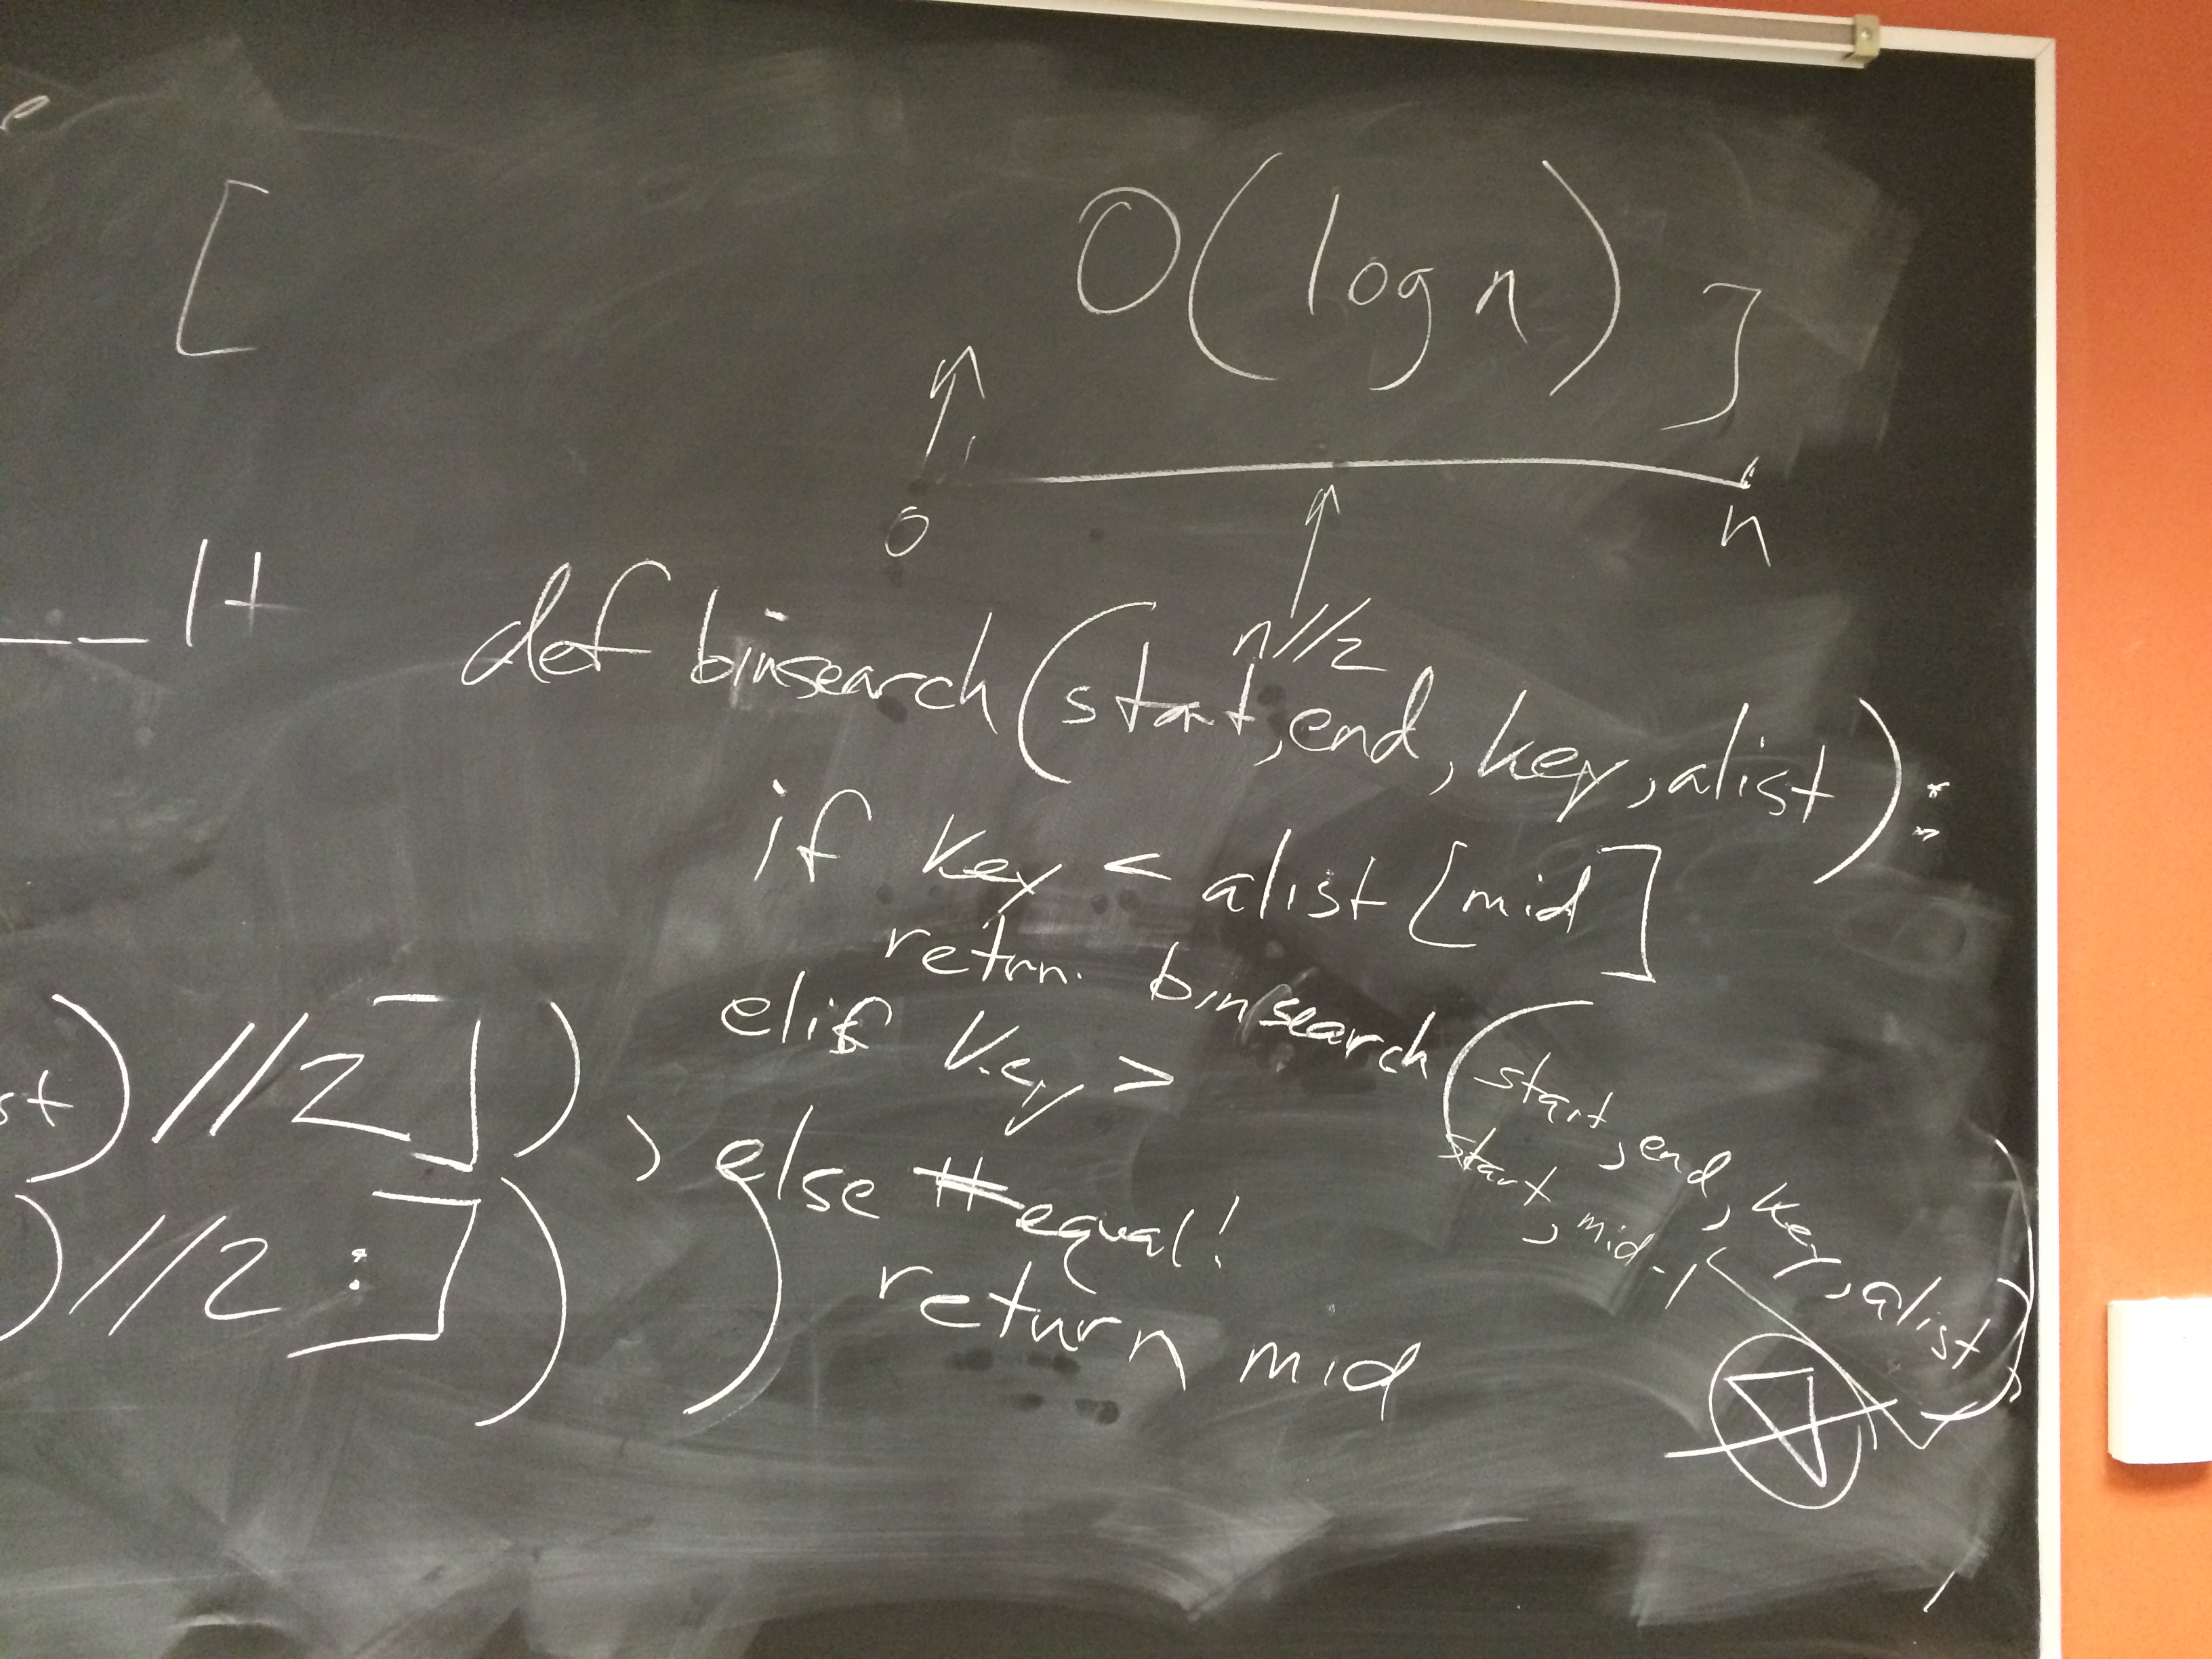 e
[ O(log n) ]
0 n
n//2
__ 1+
def binsearch(start,end, key, alist):
if key < alist[mid]
retrn. binsearch(start, end, key, alist)
start, mid-1
elif key >
st)//2]),
else #equal!
)//2:]))
return mid